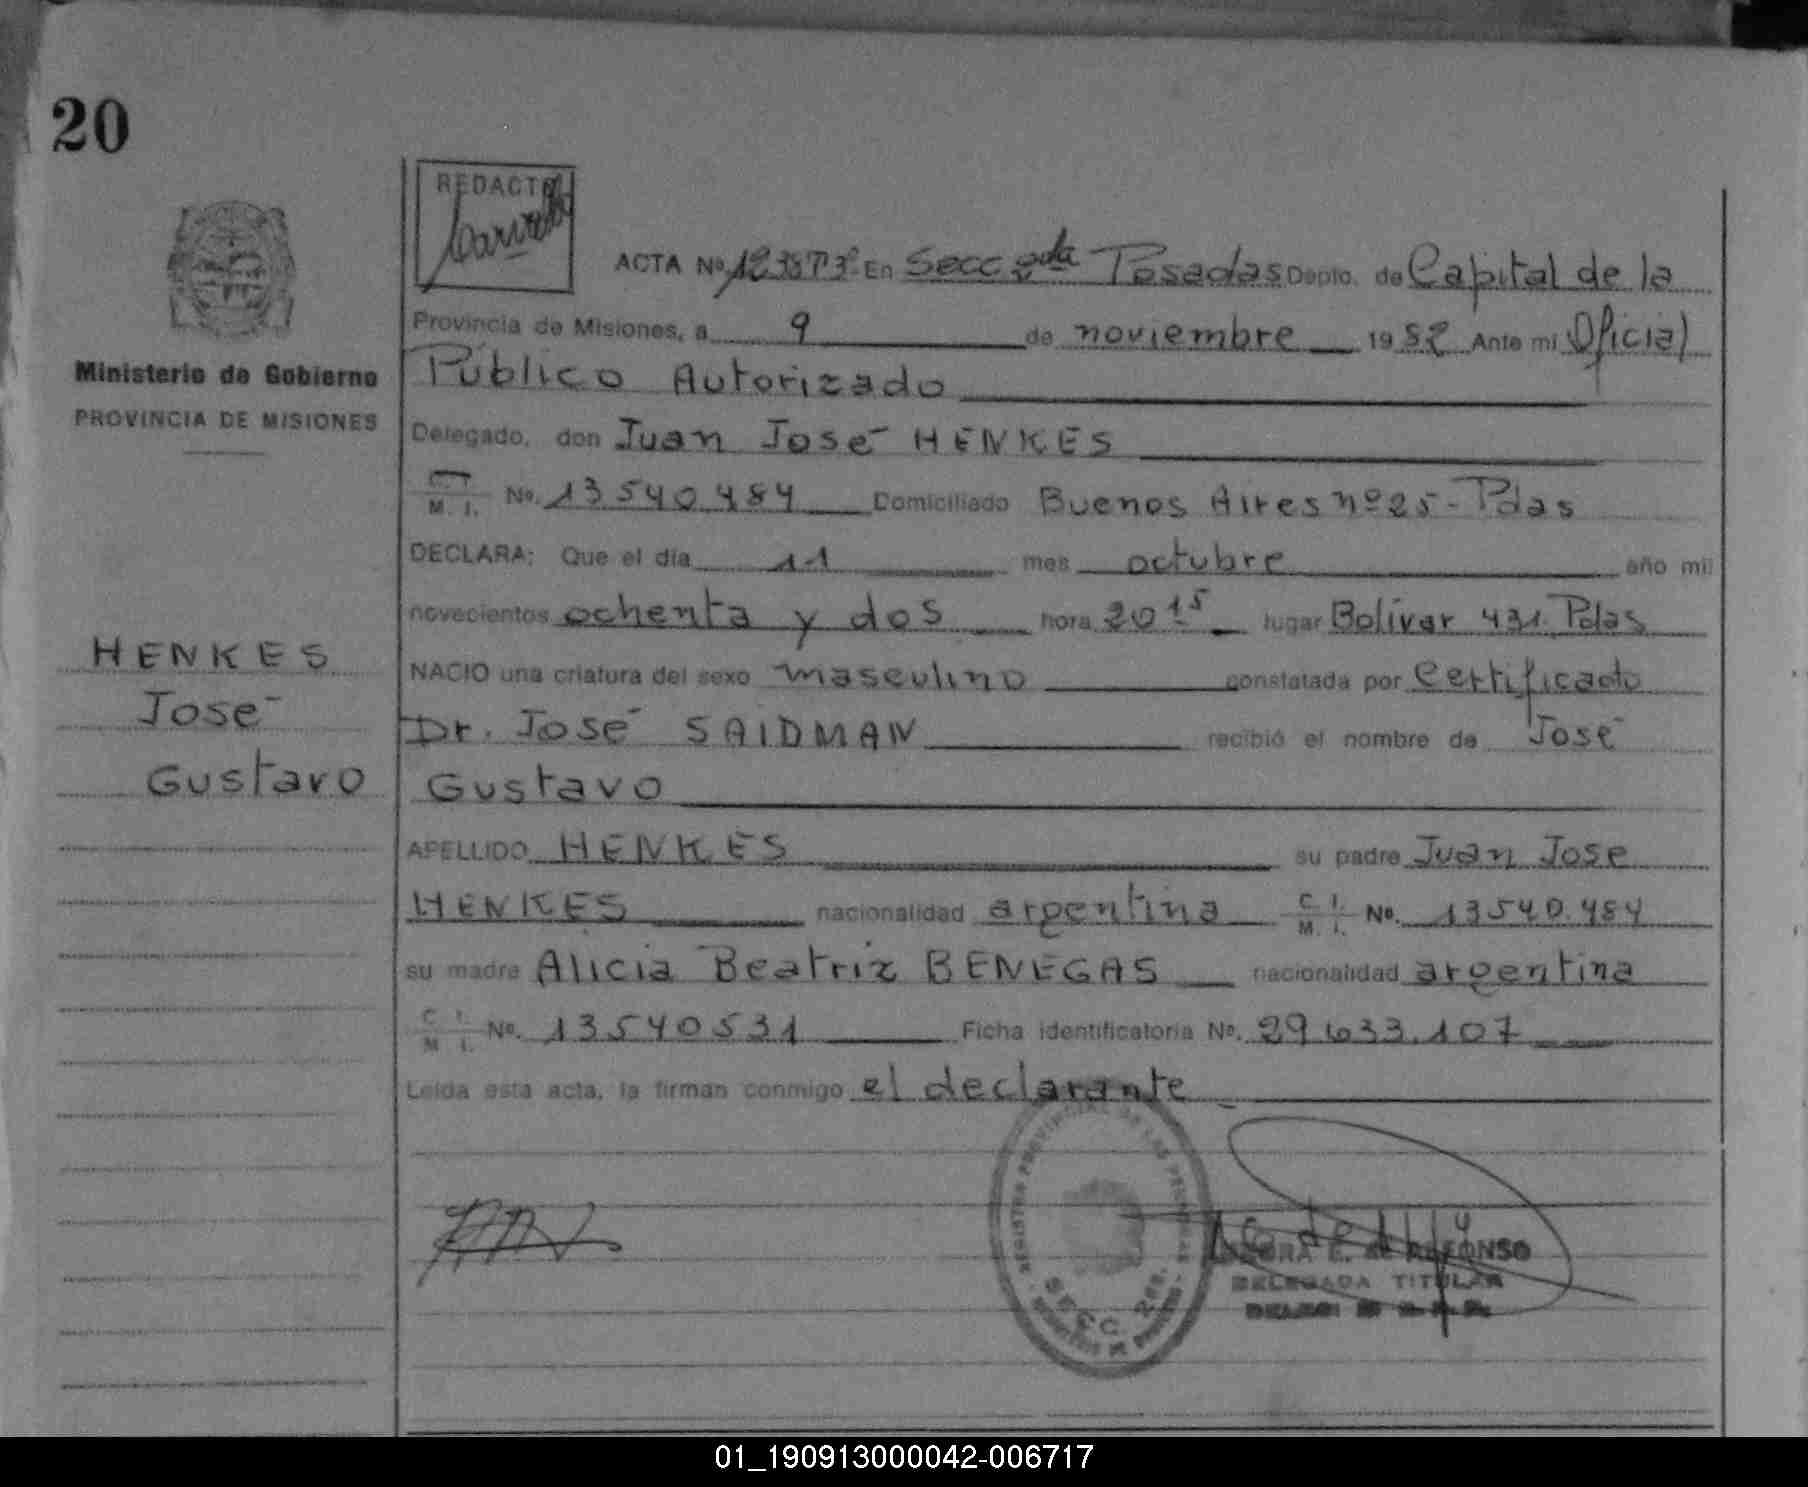 20
REDACTO
ACTA Nº En Secc 2da Posadas Depto. de Capital de la
Provincia de Misiones, a 9 de noviembre 1982 Ante mi Oficial
Público Autorizado
Ministerio de Gobierno
PROVINCIA DE MISIONES
Delegado, don Juan José HENKES
M. I. Nº. 13540484 Domiciliado Buenos Aires nº 25 - Pdas
DECLARA: Que el día 11 mes octubre año mil
novecientos ochenta y dos hora 20 15 lugar Bolívar 431. Pdas
HENKES
José
Gustavo
NACIO una criatura del sexo masculino constatada por Certificado
Dr. José SAIDMAN recibió el nombre de José
Gustavo
APELLIDO HENKES su padre Juan Jose
HENKES nacionalidad argentina C. I. M. I. Nº. 13540.484
su madre Alicia Beatriz BENEGAS nacionalidad argentina
C. I. M. I. Nº. 13540531 Ficha identificatoria Nº. 29633.107
Leída esta acta, la firman conmigo el declarante
REGISTRO PROVINCIAL DE LAS PERSONAS
SECC. 2da.
E. de ALFONSO
DELEGADA TITULAR
01_190913000042-006717